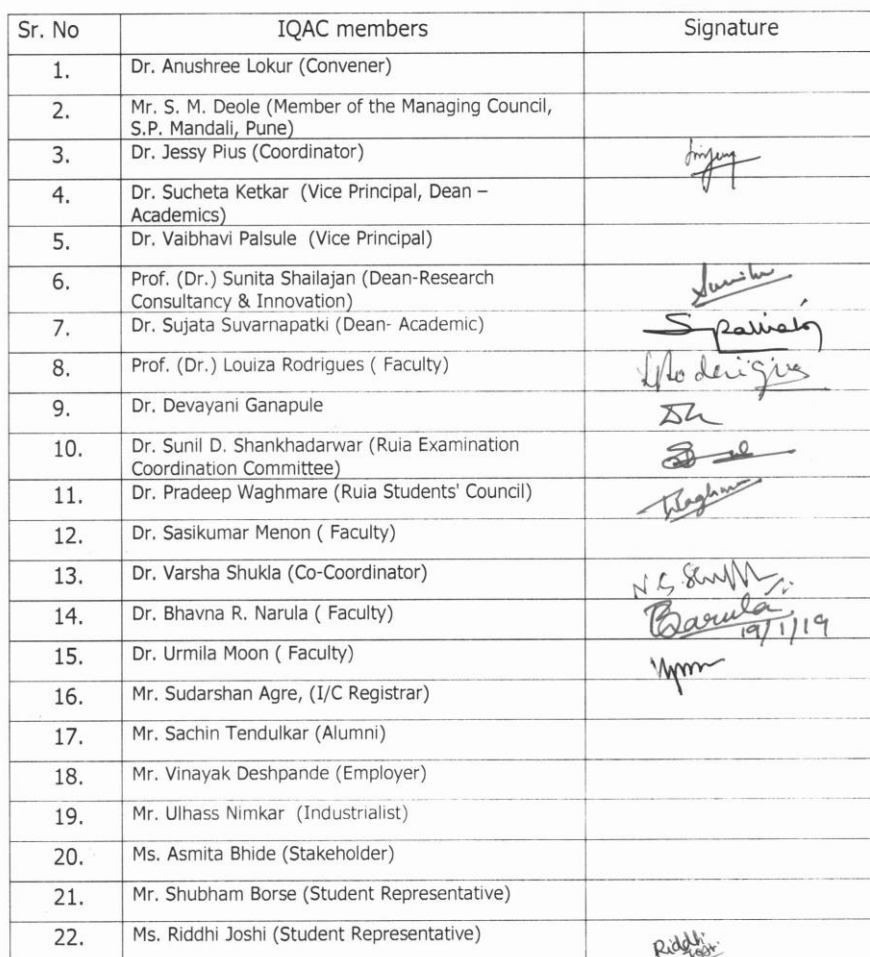 Sr. No IQAC members Signature
1. Dr. Anushree Lokur (Convener)
2. Mr. S. M. Deole (Member of the Managing Council,
S.P. Mandali, Pune)
3. Dr. Jessy Pius (Coordinator)
4. Dr. Sucheta Ketkar (Vice Principal, Dean –
Academics)
5. Dr. Vaibhavi Palsule (Vice Principal)
6. Prof. (Dr.) Sunita Shailajan (Dean-Research
Consultancy & Innovation)
7. Dr. Sujata Suvarnapatki (Dean- Academic)
8. Prof. (Dr.) Louiza Rodrigues ( Faculty)
9. Dr. Devayani Ganapule
10. Dr. Sunil D. Shankhadarwar (Ruia Examination
Coordination Committee)
11. Dr. Pradeep Waghmare (Ruia Students' Council)
12. Dr. Sasikumar Menon ( Faculty)
13. Dr. Varsha Shukla (Co-Coordinator)
14. Dr. Bhavna R. Narula ( Faculty)
19/1/19
15. Dr. Urmila Moon ( Faculty)
16. Mr. Sudarshan Agre, (I/C Registrar)
17. Mr. Sachin Tendulkar (Alumni)
18. Mr. Vinayak Deshpande (Employer)
19. Mr. Ulhass Nimkar (Industrialist)
20. Ms. Asmita Bhide (Stakeholder)
21. Mr. Shubham Borse (Student Representative)
22. Ms. Riddhi Joshi (Student Representative) Riddhi